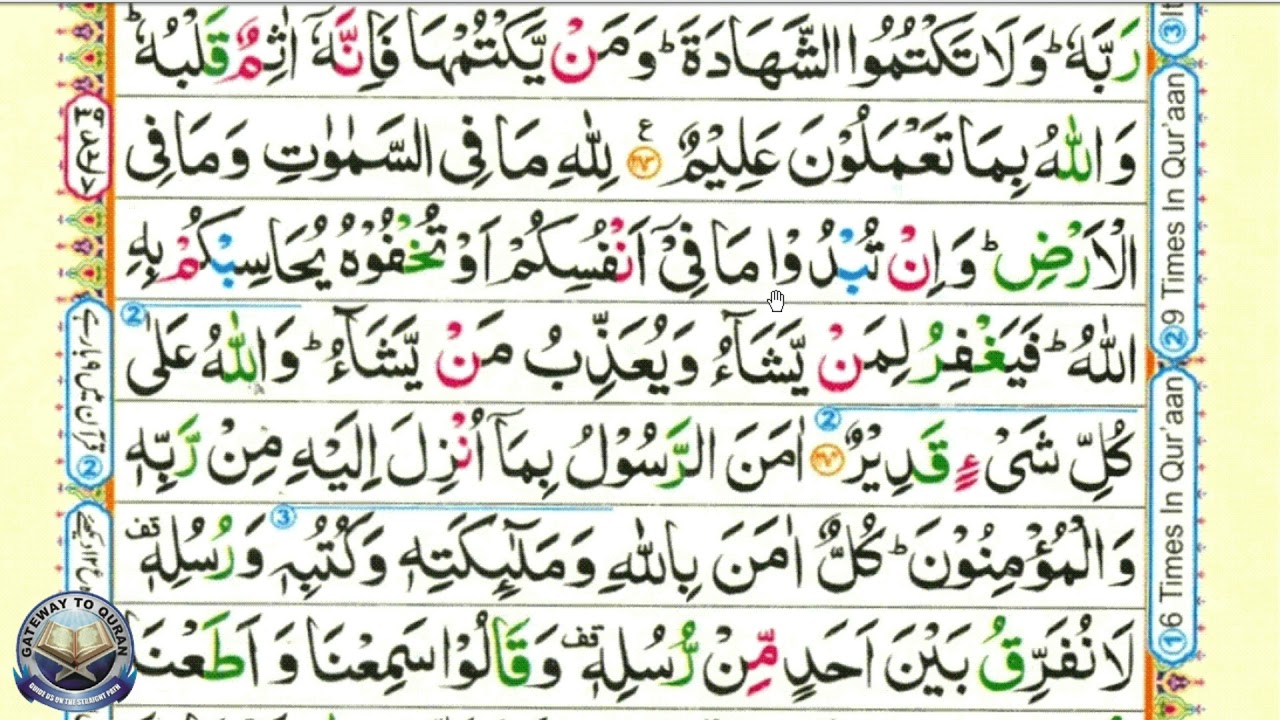 رَبَّهٗ ؕ وَلَا تَكْتُمُوا الشَّهَادَةَ ؕ وَمَنْ يَّكْتُمْهَا فَاِنَّهٗۤ اٰثِمٌ قَلْبُهٗ ؕ
وَاللّٰهُ بِمَا تَعْمَلُوْنَ عَلِيْمٌ ﴿۲۸۳﴾ ع لِلّٰهِ مَا فِى السَّمٰوٰتِ وَمَا فِى
الْاَرْضِ ؕ وَاِنْ تُبْدُوْا مَا فِىْۤ اَنْفُسِكُمْ اَوْ تُخْفُوْهُ يُحَاسِبْكُمْ بِهِ
اللّٰهُ ؕ فَيَغْفِرُ لِمَنْ يَّشَآءُ وَيُعَذِّبُ مَنْ يَّشَآءُ ؕ وَاللّٰهُ عَلٰى
كُلِّ شَىْءٍ قَدِيْرٌ ﴿۲۸۴﴾ اٰمَنَ الرَّسُوْلُ بِمَاۤ اُنْزِلَ اِلَيْهِ مِنْ رَّبِّهٖ
وَالْمُؤْمِنُوْنَ ؕ كُلٌّ اٰمَنَ بِاللّٰهِ وَمَلٰٓئِكَتِهٖ وَكُتُبِهٖ وَرُسُلِهٖ قف
لَا نُفَرِّقُ بَيْنَ اَحَدٍ مِّنْ رُّسُلِهٖ قف وَقَالُوْا سَمِعْنَا وَاَطَعْنَا
③ It
② 9 Times In Qur'aan
① 6 Times In Qur'aan
②
②
③
② قرآن میں ۹ بار ہے
GATEWAY TO QURAN
GUIDE US ON THE STRAIGHT PATH